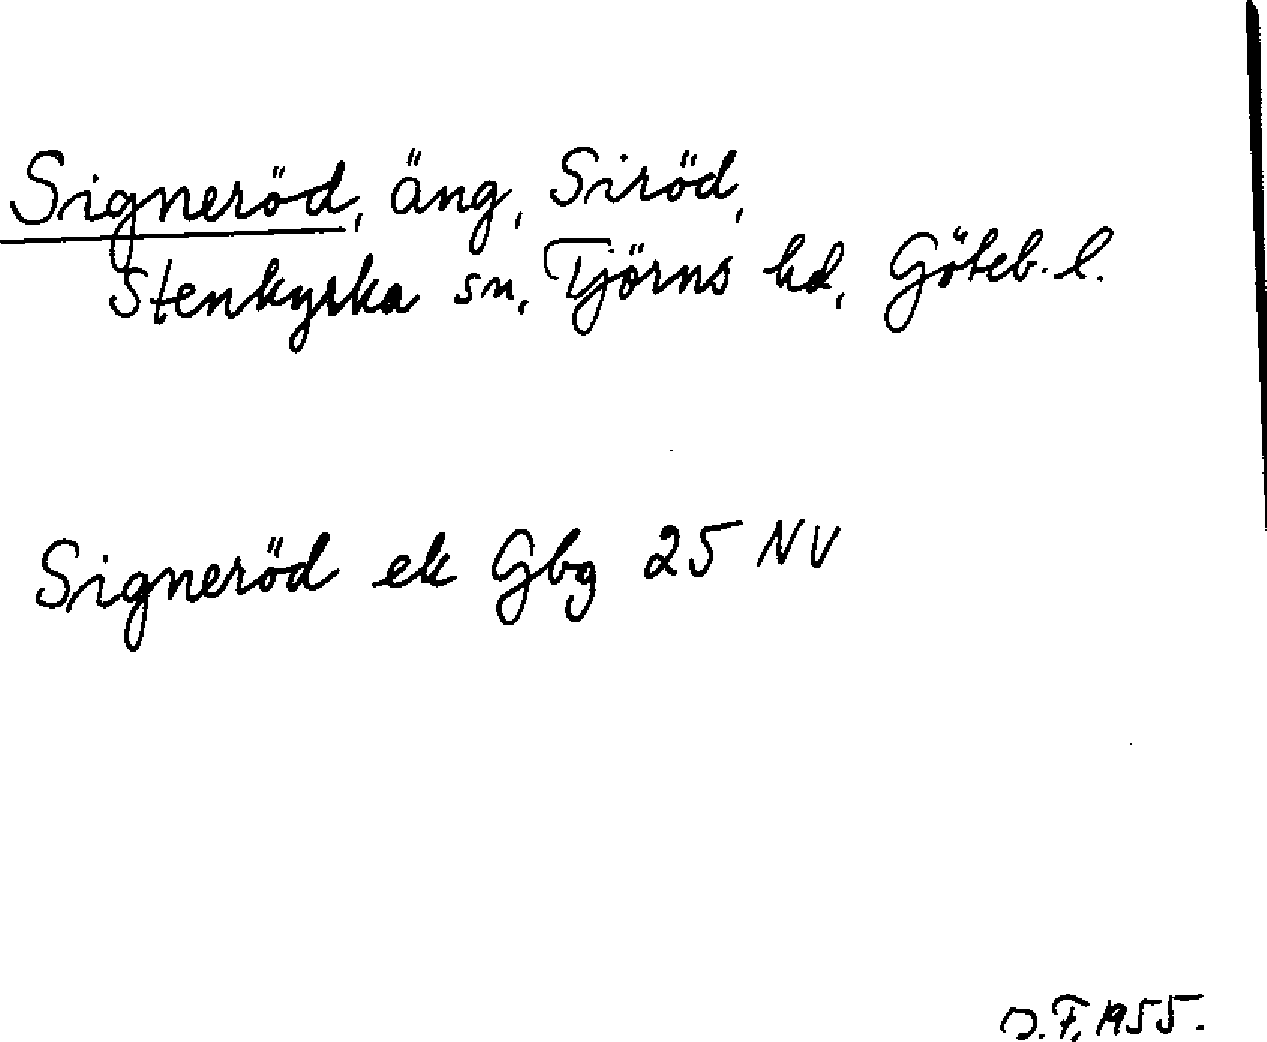 Signeröd, äng, Siröd,
Stenkyrka sn, Tjörns hd, Göteb. l.
Signeröd ek Gbg 25 NV
F, 1955.